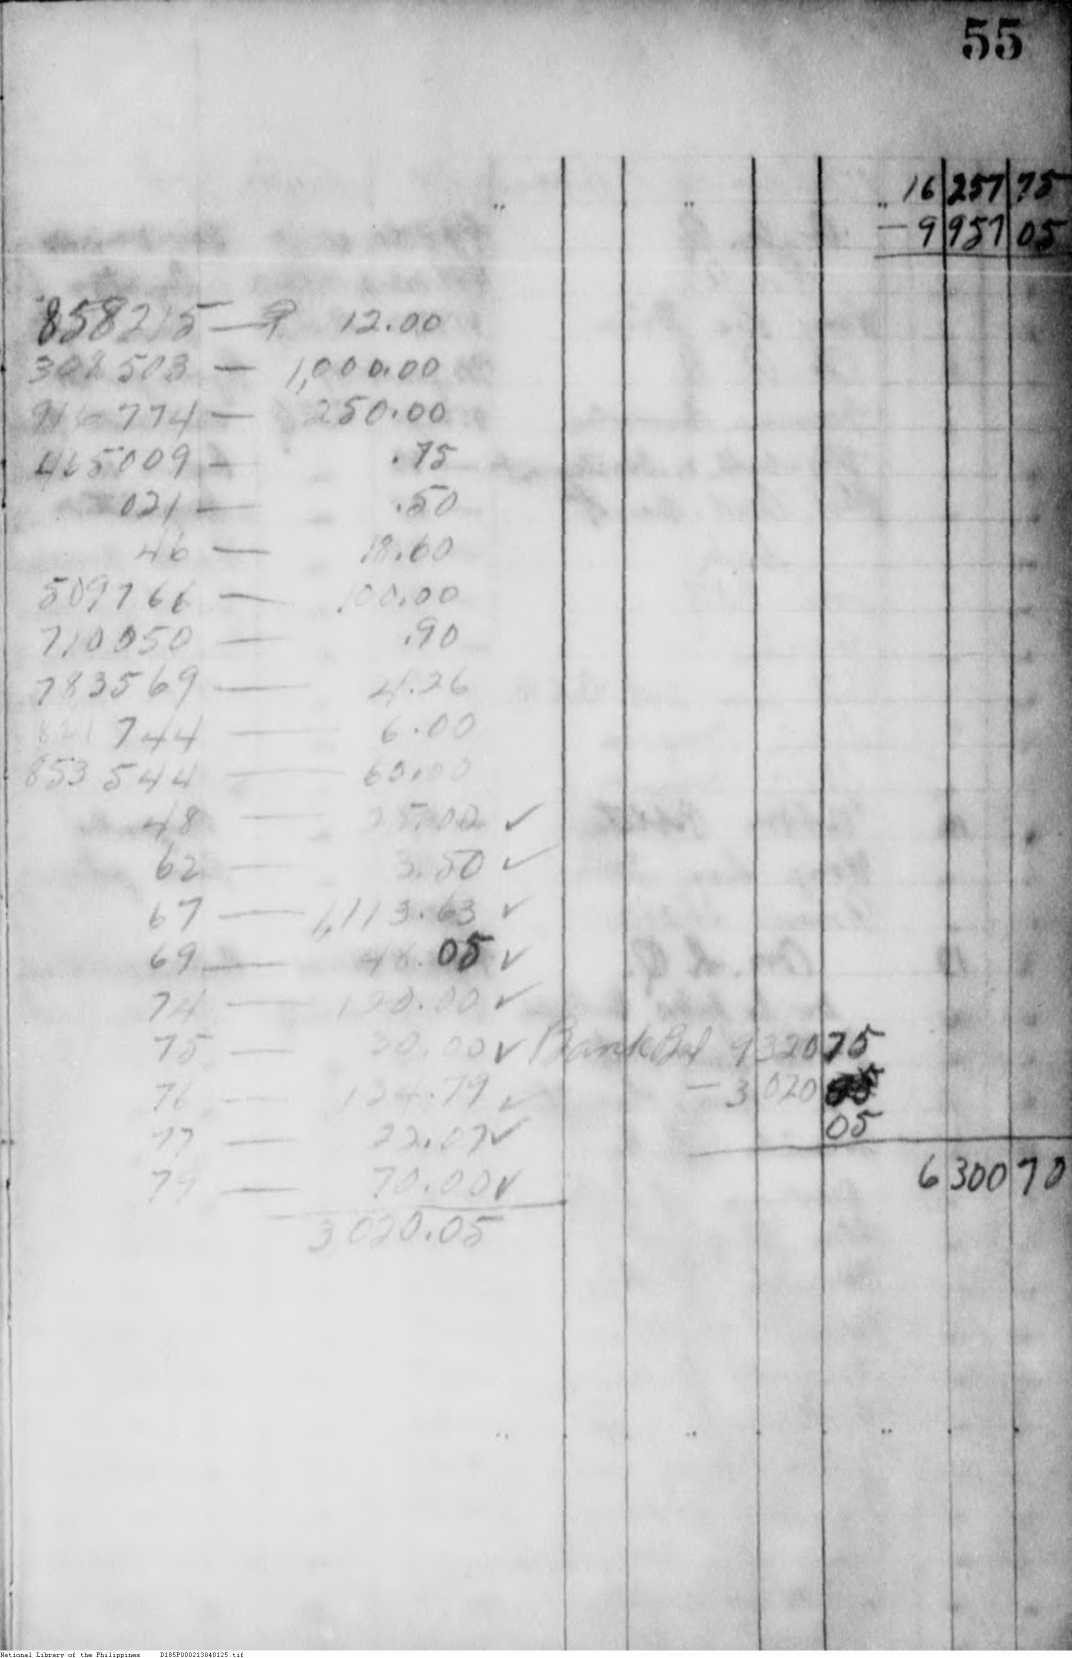 55
16 257 75
- 9 957 05
858215 — ₱ 12.00
308503 — 1,000.00
916774 — 250.00
465009 — .75
021 — .50
46 — 18.60
509766 — 100.00
710050 — .90
783569 — 4.26
821744 — 6.00
853544 — 60.00
48 — 25.00 ✓
62 — 3.50 ✓
67 — 1,113.63 ✓
69 — 48.05 ✓
74 — 120.00 ✓
75 — 30.00 ✓ Bank Bal 9 320 75
76 — 134.79 ✓ - 3 020
77 — 22.07 ✓ 05
79 — 70.00 ✓ 6 300 70
3020.05
National Library of the Philippines D185P000213040125.tif